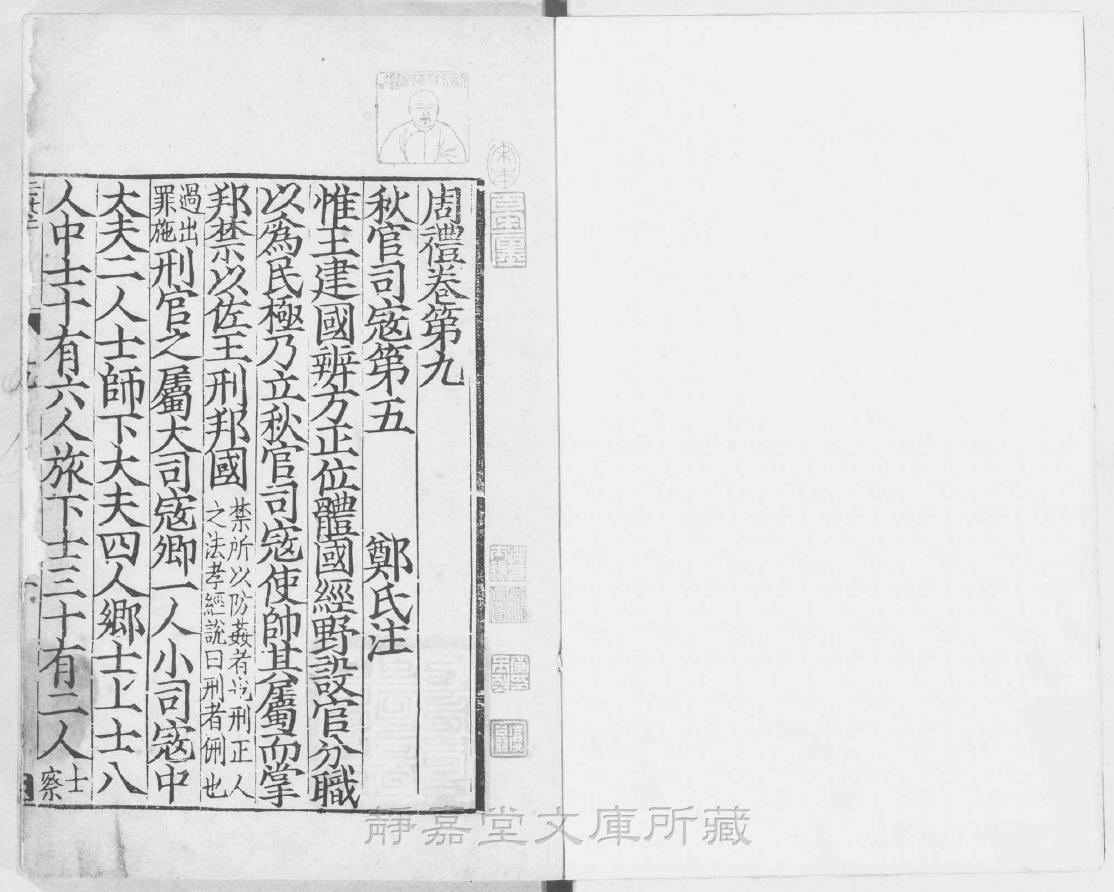 周禮卷第九
秋官司寇第五　鄭氏注
惟王建國辨方正位體國經野設官分職
以爲民極乃立秋官司寇使帥其屬而掌
邦禁以佐王刑邦國禁所以防姦者也刑正人
之法孝經說曰刑者侀也
過出
罪施刑官之屬大司寇卿一人小司寇中
大夫二人士師下大夫四人鄉士上士八
人中士十有六人旅下士三十有二人士
察
靜嘉堂文庫所藏